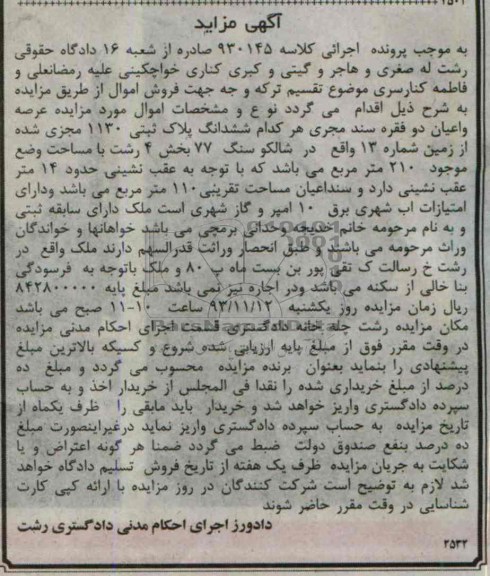 ۲۵۰۲
آگهی مزاید
به موجب پرونده اجرائی کلاسه ۹۳۰۱۴۵ صادره از شعبه ۱۶ دادگاه حقوقی
رشت له صغری و هاجر و گیتی و کبری کناری خواچکینی علیه رمضانعلی و
فاطمه کنارسری موضوع تقسیم ترکه و جه جهت فروش اموال از طریق مزایده
به شرح ذیل اقدام می گردد نو ع و مشخصات اموال مورد مزایده عرصه
واعیان دو فقره سند مجری هر کدام ششدانگ پلاک ثبتی ۱۱۳۰ مجزی شده
از زمین شماره ۱۳ واقع در شالکو سنگ ۷۷ بخش ۴ رشت با مساحت وضع
موجود ۲۱۰ متر مربع می باشد که با توجه به عقب نشینی حدود ۱۴ متر
عقب نشینی دارد و سنداعیان مساحت تقریبی۱۱۰ متر مربع می باشد ودارای
امتیازات اب شهری برق ۱۰ امپر و گاز شهری است ملک دارای سابقه ثبتی
و به نام مرحومه خانم خدیجه وحدانی برمچی می باشد خواهانها و خواندگان
وراث مرحومه می باشند و طبق انحصار وراثت قدرالسهم دارند ملک واقع در
رشت خ رسالت ک تقی پور بن بست ماه پ ۸۰ و ملک باتوجه به فرسودگی
بنا خالی از سکنه می باشد ودر اجاره نیز نمی باشد مبلغ پایه ۸۴۲۸۰۰۰۰۰
ریال زمان مزایده روز یکشنبه ۹۳/۱۱/۱۲ ساعت ۱۰-۱۱ صبح می باشد
مکان مزایده رشت چله خانه دادگستری قسمت اجرای احکام مدنی مزایده
در وقت مقرر فوق از مبلغ پایه ارزیابی شده شروع و کسیکه بالاترین مبلغ
پیشنهادی را بنماید بعنوان برنده مزایده محسوب می گردد و مبلغ ده
درصد از مبلغ خریداری شده را نقدا فی المجلس از خریدار اخذ و به حساب
سپرده دادگستری واریز خواهد شد و خریدار باید مابقی را ظرف یکماه از
تاریخ مزایده به حساب سپرده دادگستری واریز نماید درغیراینصورت مبلغ
ده درصد بنفع صندوق دولت ضبط می گردد ضمنا هر گونه اعتراض و یا
شکایت به جریان مزایده ظرف یک هفته از تاریخ فروش تسلیم دادگاه خواهد
شد لازم به توضیح است شرکت کنندگان در روز مزایده با ارائه کپی کارت
شناسایی در وقت مقرر حاضر شوند
دادورز اجرای احکام مدنی دادگستری رشت
۲۵۳۲